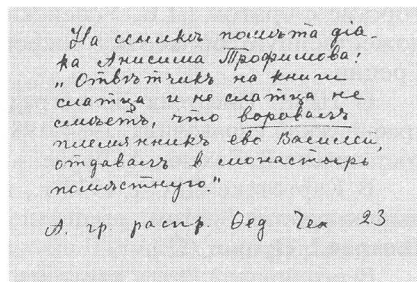 На ссылкѣ помѣта діа-
ка Анисима Трофимова:
„Отвѣтчикъ на книги
слатца и не слатца не
смѣетъ, что воровалъ
племянникъ ево Василей,
отдавалъ в монастырь
помѣстную."
А. гр. распр. Ѳед Чел 23